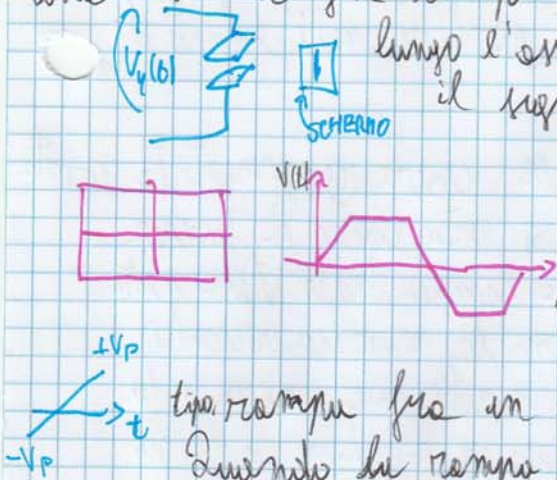 Vy(t)
lungo l'as
il seg
SCHERMO
V(t)
+Vp
t
-Vp
tipo rampa fra un
Quando la rampa